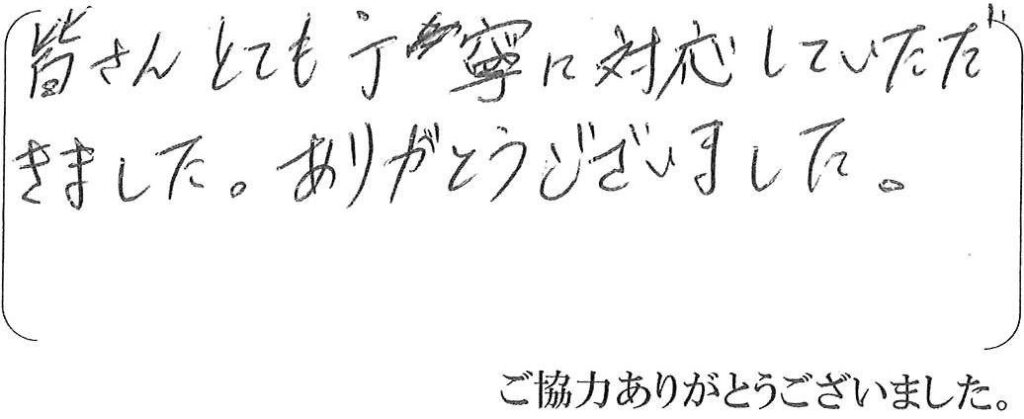 皆さんとても丁寧に対応していただ
きました。ありがとうございました。
ご協力ありがとうございました。